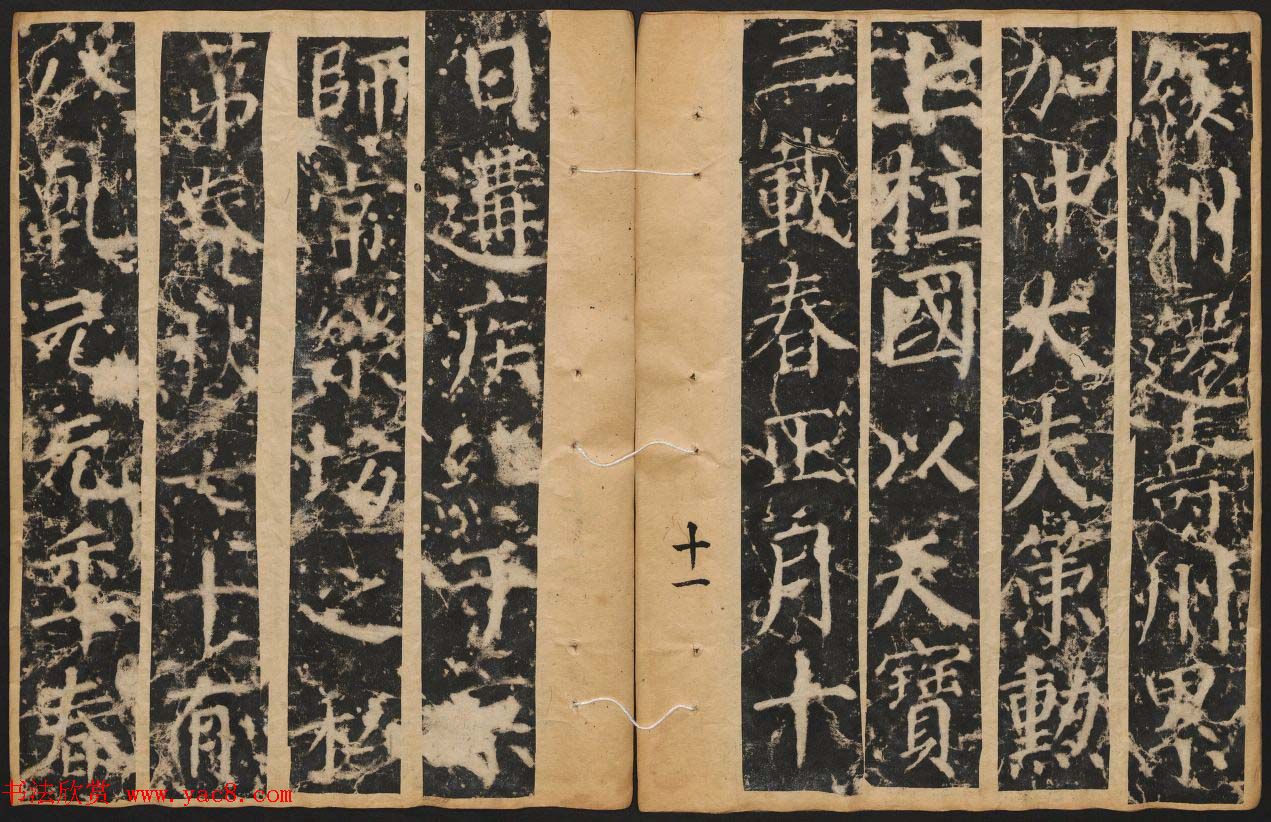 綏州遷壽州累
加中大夫策勳
上柱國以天寶
三載春正月十
十一
日遘疾終于
師常樂坊之私
第春秋七十有
八乾元元年春
书法欣赏 www.yac8.com